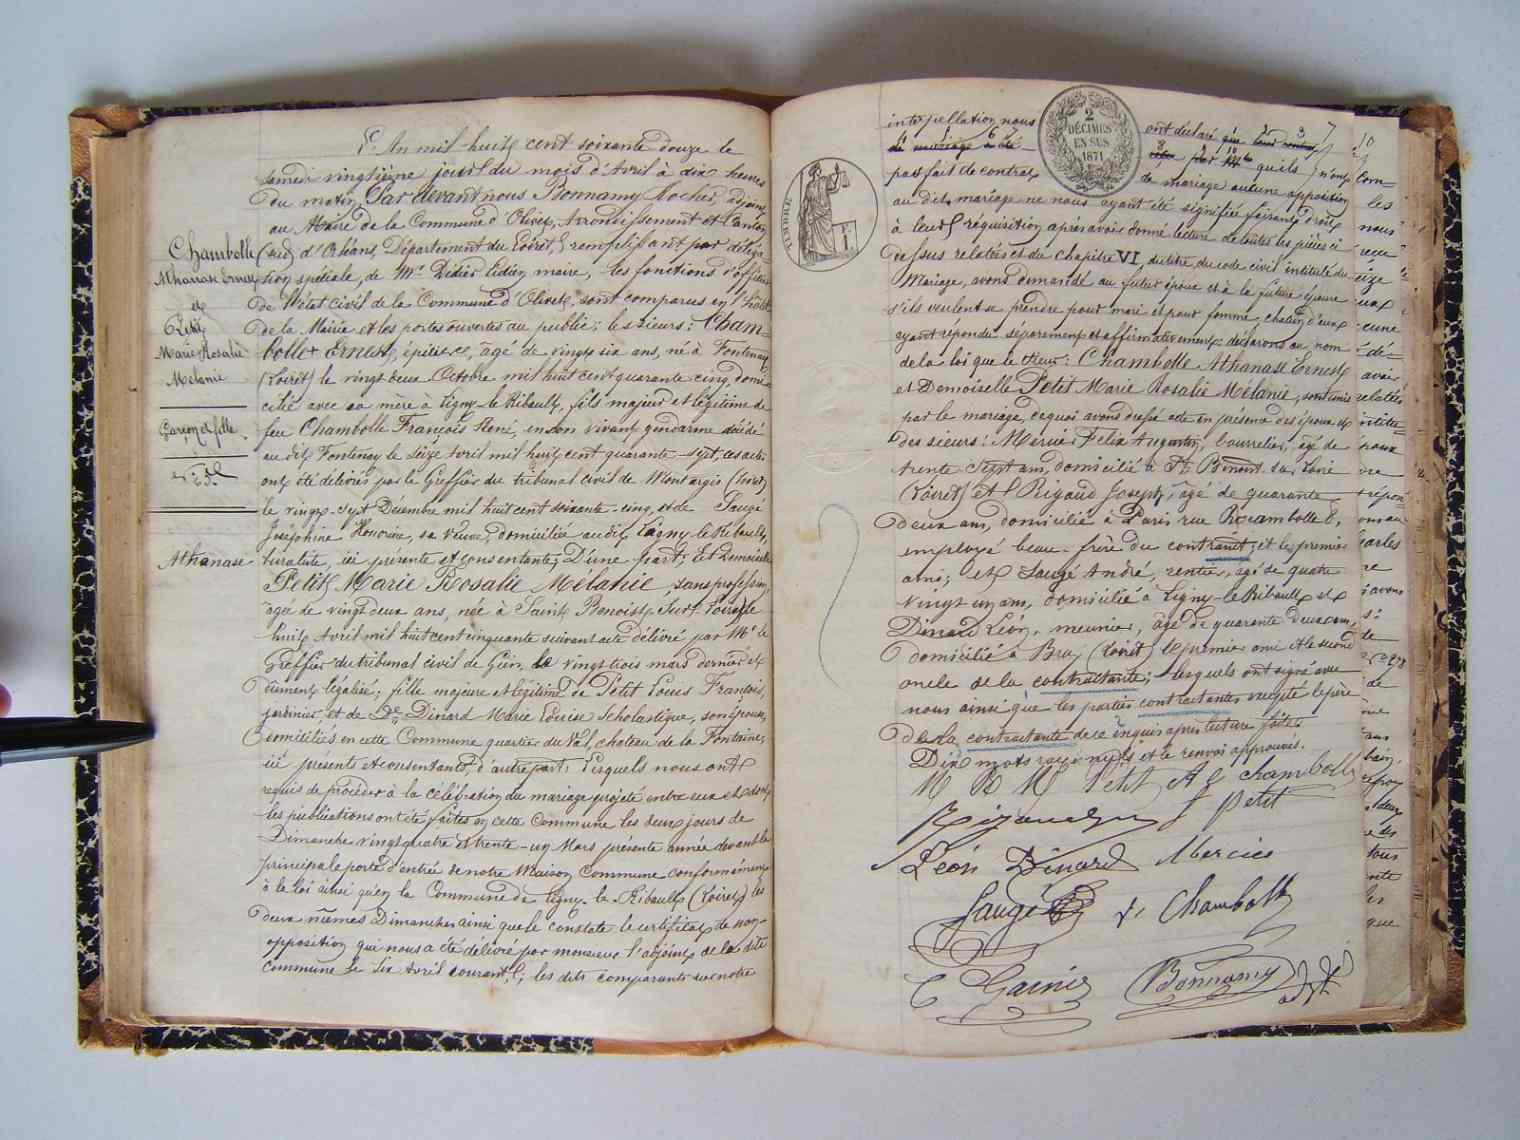 L'An mil huit cent soixante douze le
samedi vingtième jour du mois d'Avril à dix heures
du matin, Par devant nous Bonnamy Rocher, adjoint
au Maire de la Commune d'Olivet, Arrondissement et Canton
(sud) d'Orléans, Département du Loiret, remplissant par déléga-
tion spéciale, de Mr Didier maire, les fonctions d'officier
de l'état civil de la Commune d'Olivet, sont comparus en l'hôtel
de la Mairie et les portes ouvertes au public; les sieurs: Cham-
bolle Ernest, âgé de vingt six ans, né à Fontenay
(Loiret) le vingt deux Octobre mil huit cent quarante cinq, domi-
cilié avec sa mère à Ligny-le-Ribault, fils majeur et légitime de
feu Chambolle François René, en son vivant gendarme décédé
au dit Fontenay le seize avril mil huit cent quarante-sept, ces actes
ont été délivrés par le Greffier du tribunal civil de Montargis (Loiret)
le vingt-sept Décembre mil huit cent soixante-cinq, et de Saugé
Joséphine Honorine, sa veuve, domiciliée au dit Ligny-le-Ribault,
ici présente et consentante, D'une part; Et Demoiselle
Petit Marie Rosalie Mélanie, sans profession,
âgée de vingt deux ans, née à Saint Benoist Sur Loire le
huit Avril mil huit cent cinquante suivant acte délivré par Mr le
Greffier du tribunal civil de Gien, le vingt trois mars dernier et
dûment légalisé; fille majeure et légitime de Petit Louis François,
jardinier, et de De Dinard Marie Louise Scholastique, son épouse,
domiciliés en cette Commune quartier du Val, chateau de la Fontaine,
ici présents et consentants, d'autre part; Lesquels nous ont
requis de procéder à la célébration du mariage projeté entre eux et dont
les publications ont été faites en cette Commune les deux jours de
Dimanche vingt quatre et trente-un Mars présente année devant la
principale porte d'entrée de notre Maison Commune conformément
à la loi ainsi qu'en la Commune de Ligny-le-Ribault (Loiret) les
deux mêmes Dimanches ainsi que le constate le certificat de non-
opposition qui nous a été délivré par monsieur l'adjoint de la dite
commune le six Avril courant, les dits comparants sur notre
Chambolle
Athanase Ernest
et
Petit
Marie Rosalie
Mélanie
Garçon et fille
Athanase
interpellation nous ont déclaré
qu'ils n'ont
pas fait de contrat de mariage aucune opposition
au dit mariage ne nous ayant été signifiée faisant droit
à leur réquisition après avoir donné lecture de toutes les pièces ci
dessus relatées et du chapitre VI du titre du code civil intitulé du
Mariage, avons demandé au futur époux et à la future épouse
s'ils veulent se prendre pour mari et pour femme, chacun d'eux
ayant répondu séparément et affirmativement déclarons au nom
de la loi que le sieur: Chambolle Athanase Ernest
et Demoiselle Petit Marie Rosalie Mélanie, sont unis
par le mariage, ce quoi avons dressé acte en présence des époux et
des sieurs: Mercier Felix Augustin, bourrelier, âgé de
trente sept ans, domicilié à St Benoit sur Loire
(Loiret) et Rigaud Joseph, âgé de quarante
deux ans, domicilié à Paris rue Rocambolle 8,
employé beau-frère du contractant; et le premier
ami; et Saugé André, rentier, âgé de quatre
vingt un ans, domicilié à Ligny-le-Ribault et
Dinard Léon, meunier, âgé de quarante deux ans,
domicilié à Bray (Loiret) le premier ami et le second
oncle de la contractante; lesquels ont signé avec
nous ainsi que les parties contractantes excepté le père
de la contractante de ce enquis après lecture faite
Dix mots rayés nuls et le renvoi approuvés.
M R M Petit A E Chambolle
Petit
Léon Dinard Mercier
Saugé Ve Chambolle
Garnier Bonnamy
adjt
2
DÉCIMES
EN SUS
1871
TIMBRE
F.
1